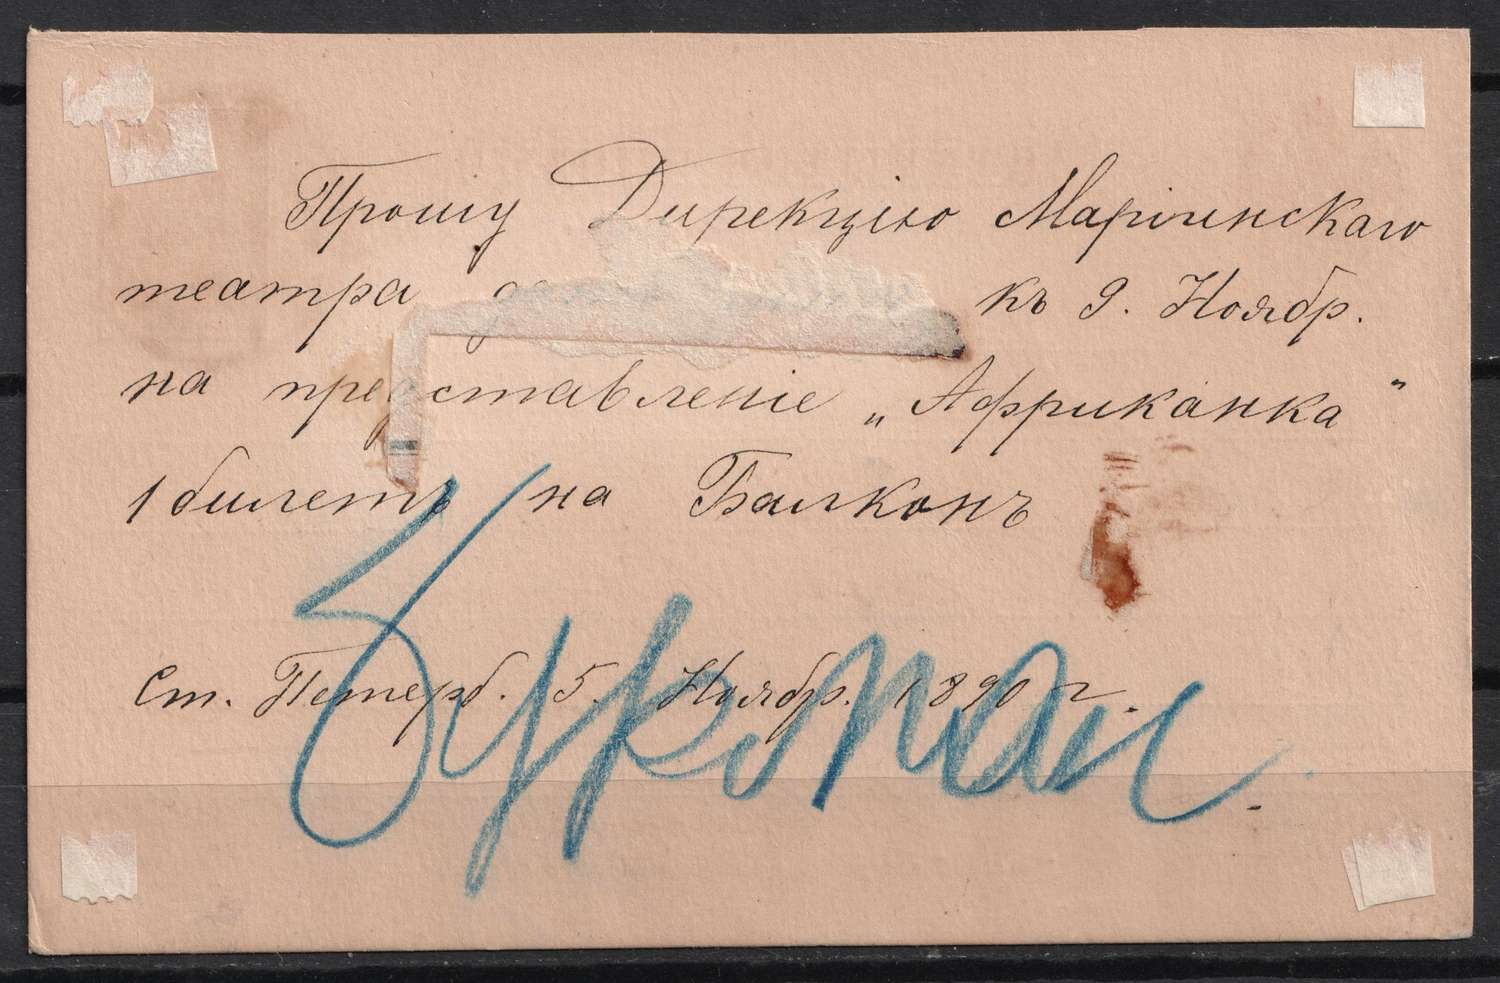 Прошу Дирекцію Маріинскаго
театра къ 9. Ноябр.
на представленіе „Африканка"
1 билетъ на Балконъ
Ст. Петерб. 5. Ноябр. 1890 г.